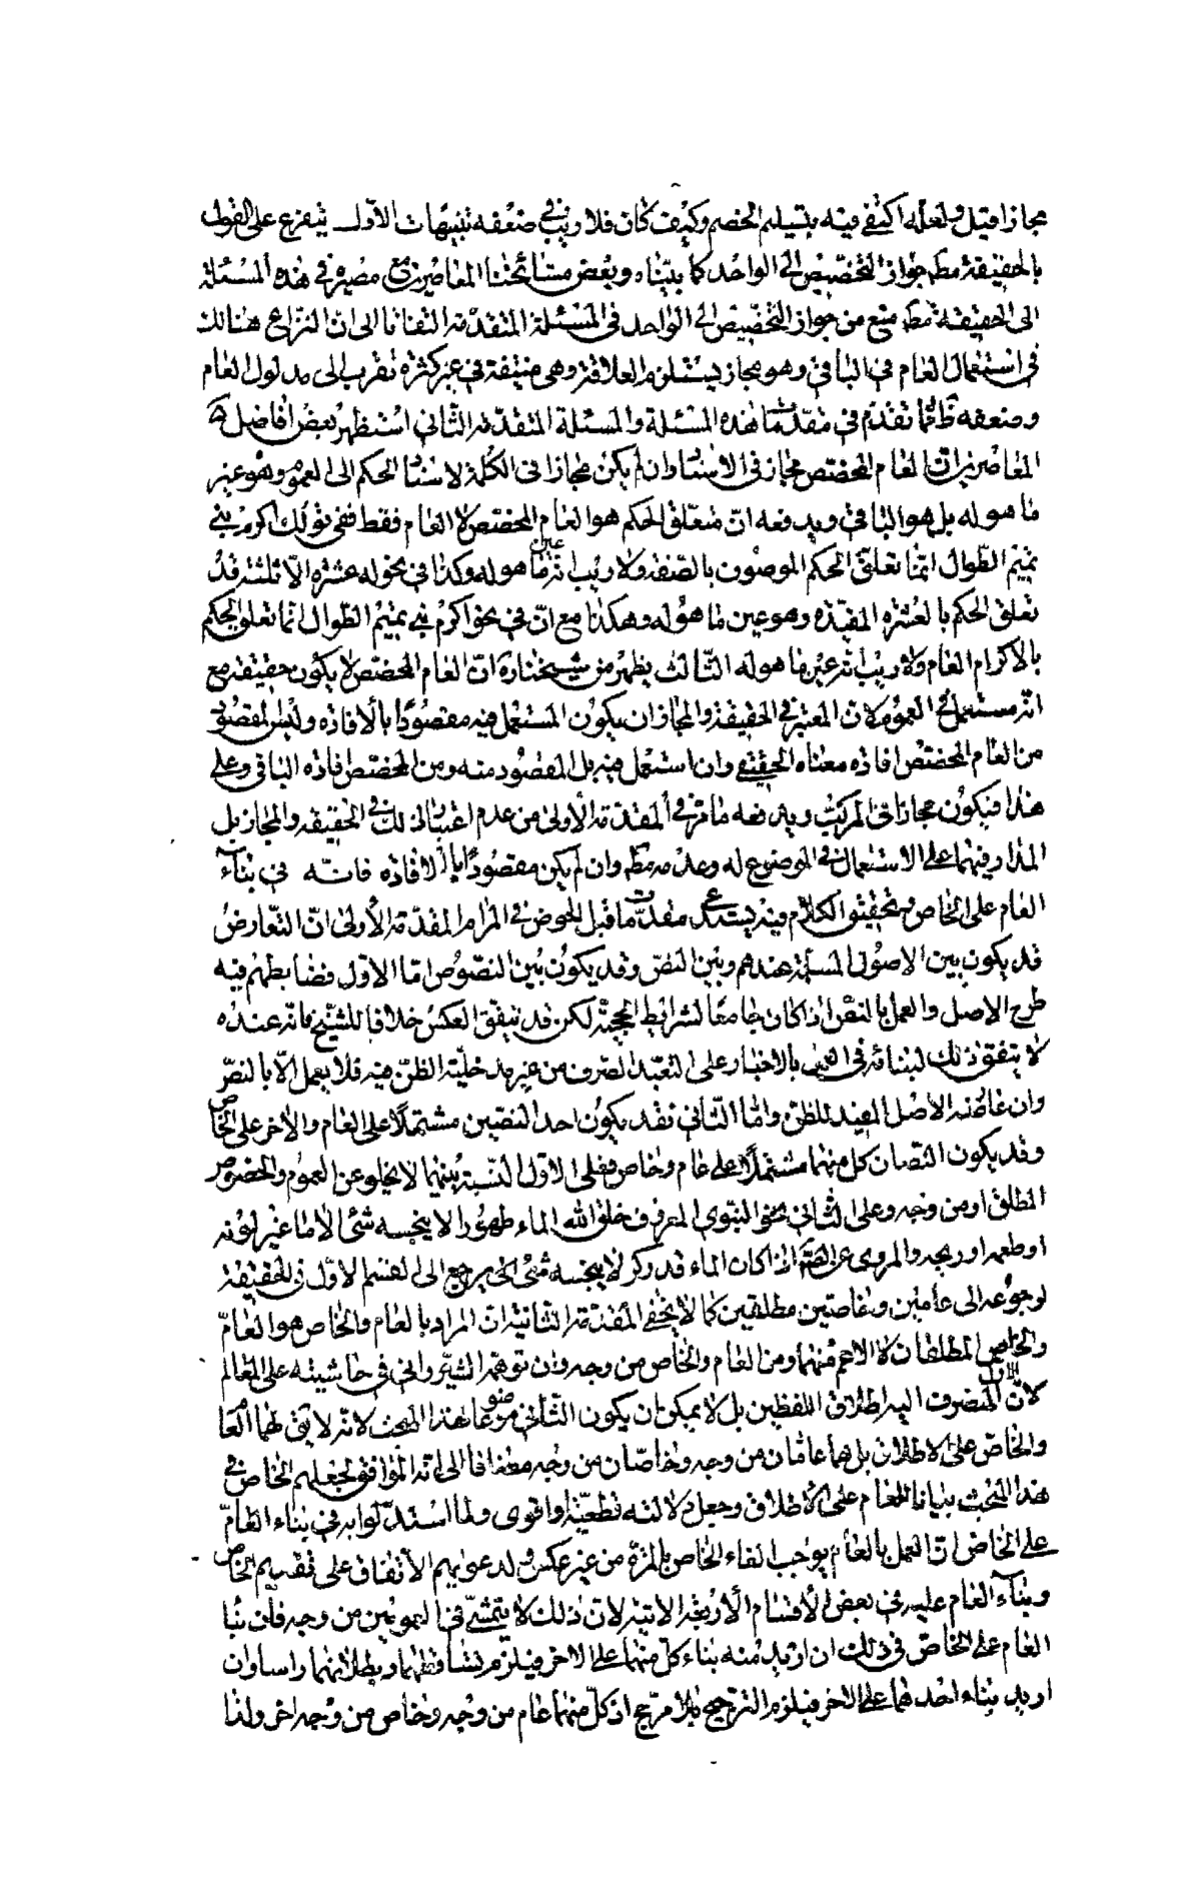 مجازا قيل ولعله اكتفى فيه بتسليم الخصم وكيف كان فلا ريب في ضعفه تنبيهات الاول يتفرع على القول
بالحقيقة مطـ جواز التخصيص الى الواحد كما بيناه وبعض مشائخنا المعاصرين مع مصيره في هذه المسئلة
الى الحقيقة مطـ منع من جواز التخصيص الى الواحد في المسئلة المتقدمة التفاتا الى ان النزاع هنالك
في استعمال العام في الباقي وهو مجاز يستلزم العلاقة وهي منتفية في غير كثرة تقرب الى مدلول العام
وضعفه ظ مما تقدم في مقدمات هذه المسئلة والمسئلة المتقدمة الثاني استظهر بعض افاضل
المعاصرين ان العام المخصص مجاز في الاسناد وان لم يكن مجازا في الكلمة لاسناد الحكم الى العموم وهو غير
ما هو له بل هو الباقي ويدفعه ان متعلق الحكم هو العام المخصص لا العام فقط ففي قولك اكرم بني
تميم الطوال انما تعلق الحكم الموصوف بالصفة ولا ريب انه عين ما هو له وكذا في نحو له عشرة الا ثلثة قد
تعلق الحكم بالعشرة المقيدة وهو عين ما هو له وهكذا مع ان في نحو اكرم بني تميم الطوال انما تعلق الحكم
بالاكرام العام ولا ريب انه غير ما هو له الثالث يظهر من شيخنا ره ان العام المخصص لا يكون حقيقة مع
انه مستعمل في العموم لان المعتبر في الحقيقة والمجاز ان يكون المستعمل فيه مقصودا بالافادة وليس المقصود
من العام المخصص افادة معناه الحقيقي وان استعمل فيه بل المقصود منه ومن المخصص افادة الباقي وعلى
هذا فيكون مجازا في المركب ويدفعه ما مر في المقدمة الاولى من عدم اعتبار ذلك في الحقيقة والمجاز بل
المدار فيهما على الاستعمال في الموضوع له وعدمه مطـ وان لم يكن مقصودا بالافادة فائدة في بناء
العام على الخاص وتحقيق الكلام فيه يستدعي مقدمات ما قبل الخوض في المرام المقدمة الاولى ان التعارض
قد يكون بين الاصول المسلمة عندهم وبين النص وقد يكون بين النصوص اما الاول فضابطهم فيه
طرح الاصل والعمل بالنص اذا كان جامعا لشرائط الحجية لكن قد يتفق العكس خلافا للشيخ فانه عنده
لا يتفق ذلك لبنائه في العمل بالاخبار على التعبد الصرف من غير مدخلية الظن فيه فلا يعمل الا بالنص
وان عارضه الاصل المفيد للظن واما الثاني فقد يكون احد النصين مشتملا على العام والاخر على الخاص
وقد يكون النصان كل منهما مشتملا على عام وخاص فعلى الاول النسبة بينهما لا يخلو عن العموم والخصوص
المطلق او من وجه وعلى الثاني نحو النبوي المعروف خلق الله الماء طهورا لا ينجسه شئ الا ما غير لونه
او طعمه او ريحه والمروي عن اذا كان الماء قدر كر لا ينجسه شئ يرجع الى القسم الاول في الحقيقة
لرجوعه الى عامين وخاصين مطلقين كما لا يخفى المقدمة الثانية ان المراد بالعام والخاص هو العام
والخاص المطلقان لا الاعم منهما ومن العام والخاص من وجه وان توهمه الشيرواني في حاشيته على المعالم
لان الاول المنصرف اليه اطلاق اللفظين بل لا يمكن ان يكون الثاني موضوعا لهذا المبحث لانه لا يقى لهما العام
والخاص على الاطلاق بل هما عامان من وجه وخاصان من وجه مضافا الى انه الموافق لجعلهم الخاص في
هذا البحث بيانا للعام على الاطلاق وجعل دلالته قطعية او اقوى ولما استدلوا به في بناء العام
على الخاص ان العمل بالعام يوجب الغاء الخاص بالمرة من غير عكس ولدعواهم الاتفاق على تقديم الخاص
وبناء العام عليه في بعض الاقسام الاربعة الاتية لان ذلك لا يتمشى في العمومين من وجه فان بناء
العام على الخاص في ذلك ان اريد منه بناء كل منهما على الاخر فيلزم تساقطهما وبطلانهما راسا وان
اريد بناء احدهما على الاخر فيلزم الترجيح بلا مرجح اذ كل منهما عام من وجه وخاص من وجه اخر ولذا